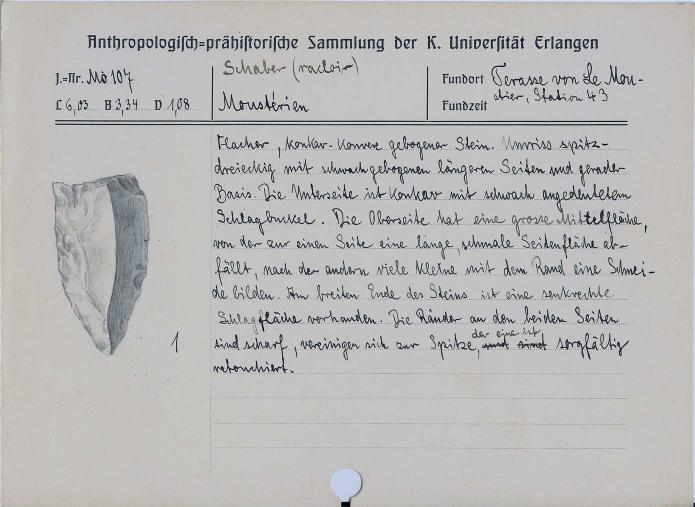 Anthropologisch=prähistorische Sammlung der K. Universität Erlangen
J.=Nr. Mo 107
Schaber (racloir)
Fundort Terasse von Le Mou-
stier, Station 43
L 6,03 B 3,34 D 1,08
Moustérien
Fundzeit
Flacher, konkav-konvex gebogener Stein. Umriss spitz-
dreieckig mit schwach gebogenen längeren Seiten und gerader
Basis. Die Unterseite ist konkav mit schwach angedeutetem
Schlagbuckel. Die Oberseite hat eine grosse Mittelfläche,
von der zur einen Seite eine lange, schmale Seitenfläche ab-
fällt, nach der andern viele kleine mit dem Rand eine Schnei-
de bilden. Am breiten Ende des Steins ist eine senkrechte
Schlagfläche vorhanden. Die Ränder an den beiden Seiten
sind scharf, vereinigen sich zur Spitze, der eine ist sorgfältig
retouchiert.
1